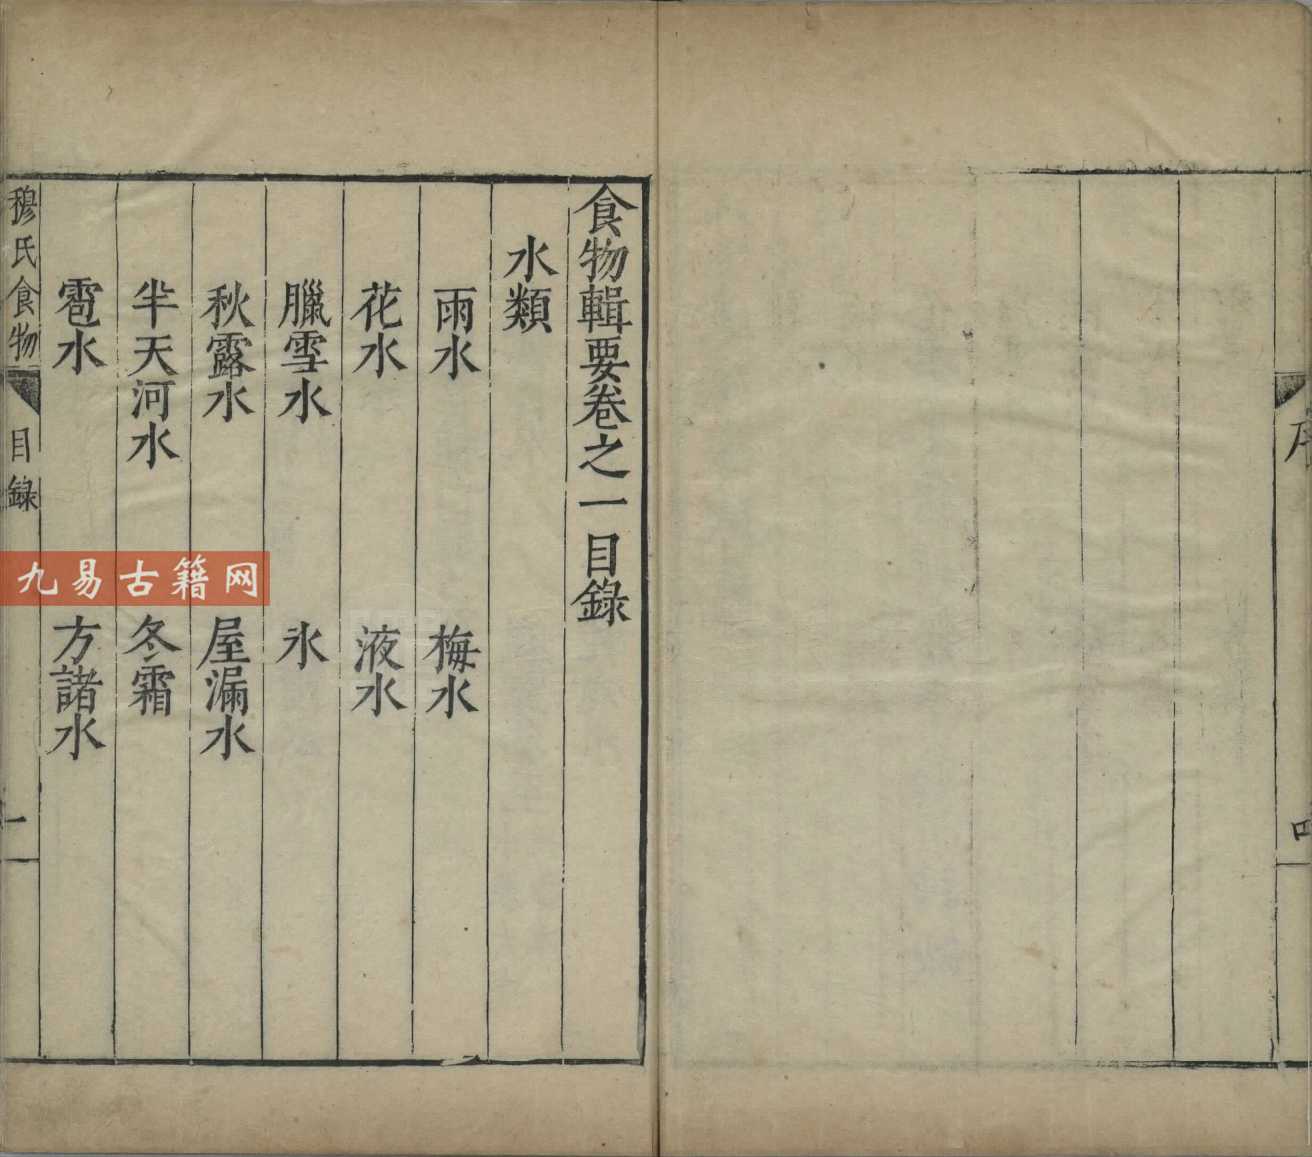 序
四
食物輯要卷之一目錄
水類
雨水　梅水
花水　液水
臘雪水　氷
秋露水　屋漏水
半天河水　冬霜
雹水　方諸水
穆氏食物　目錄　一
九易古籍网